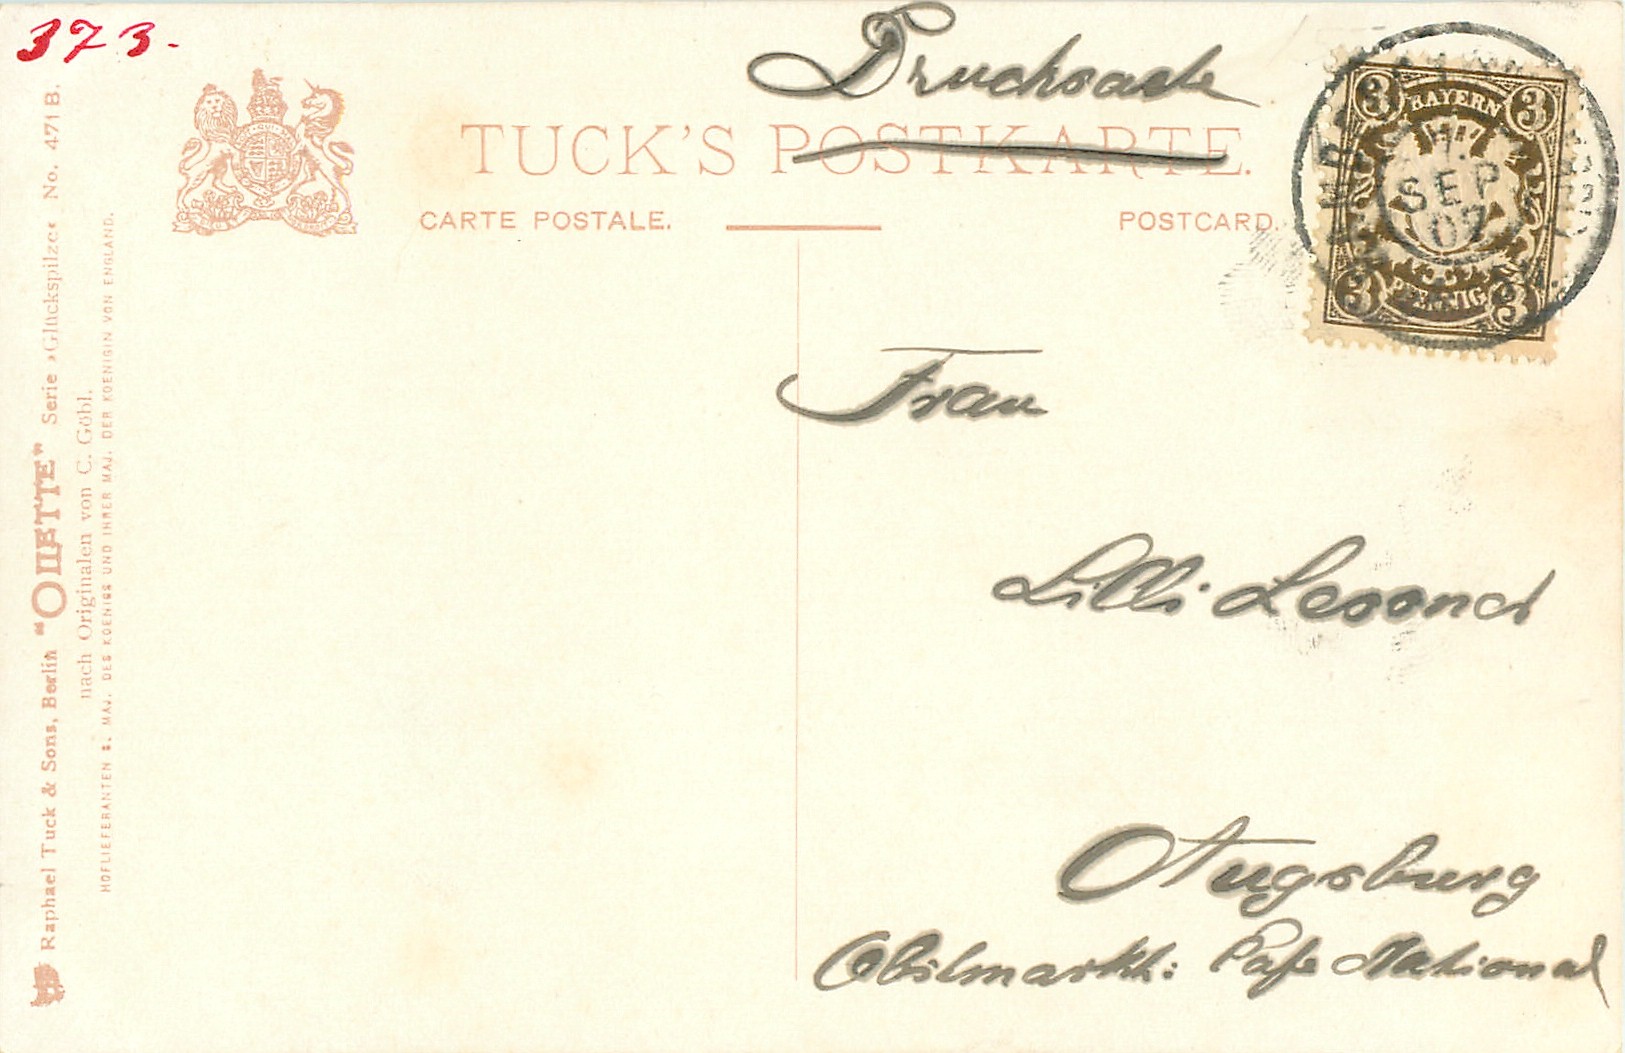 373.
Drucksache
TUCK'S POSTKARTE.
CARTE POSTALE.
POSTCARD.
3 BAYERN 3
SEP
07
3 PFENNIG 3
Frau
Lilli
Augsburg
National
Raphael Tuck & Sons, Berlin "OILETTE" Serie »Glückspilze« No. 471 B.
nach Originalen von C. Göbl.
HOFLIEFERANTEN S. MAJ. DES KOENIGS UND IHRER MAJ. DER KOENIGIN VON ENGLAND.